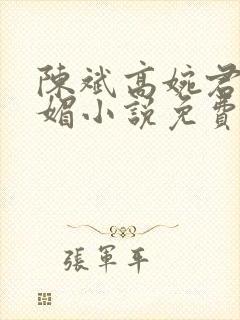 陳斌高婉君
媚小說免費
張軍平